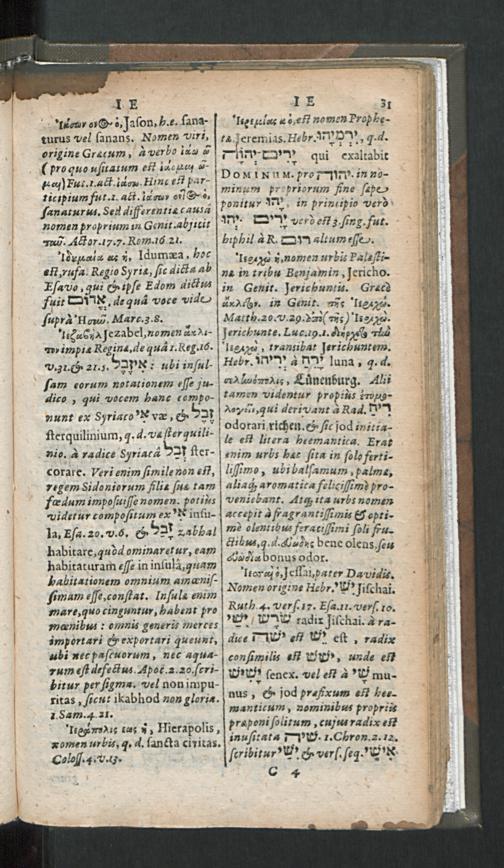 I E
Ἰάσων ονος ὁ, Jason, h.e. sana-
turus vel sanans. Nomen viri,
origine Græcum, à verbo ἰάω ῶ
(pro quo usitatum est ἰάομαι ῶ-
μαι) Fut. 1. act. ἰάσω. Hinc est par-
ticipium fut. 1. act. ἰάσων ὁ,
sanaturus. Sed differentiæ causâ
nomen proprium in Genit. abjicit
ταῦ. Actor. 17. 7. Rom. 16. 21.
Ἰδυμαία ας ἡ, Idumæa, hoc
est, rufa. Regio Syriæ, sic dicta ab
Esavo, qui & ipse Edom dictus
fuit אֱדוֹם, de quâ voce vide
suprà Ἠσαῦ. Marc. 3. 8.
Ἰεζαβὴλ Jezabel, nomen ἄκλι-
τον impiæ Reginæ, de quâ 1. Reg. 16.
v. 31. & 21. 5. אִיזֶבֶל : ubi insul-
sam eorum notationem esse ju-
dico, qui vocem hanc compo-
nunt ex Syriaco אִי væ, & זֶבֶל
sterquilinium, q. d. væ sterquili-
nio. à radice Syriacâ זְבַל ster-
corare. Veri enim simile non est,
regem Sidoniorum filiæ suæ tam
fœdum imposuisse nomen. potius
videtur compositum ex אִי insu-
la, Esa. 20. v. 6. & זָבַל zabhal
habitare, quòd ominaretur, eam
habitaturam esse in insulâ, quam
habitationem omnium amœnis-
simam esse, constat. Insulæ enim
mare, quo cinguntur, habent pro
mœnibus : omnis generis merces
importari & exportari queunt,
ubi nec pascuorum, nec aqua-
rum est defectus. Apoc. 2. 20. scri-
bitur per sigma. vel non impu-
ritas, sicut ikabhod non gloria.
1. Sam. 4. 21.
Ἱεράπολις εως ἡ, Hierapolis,
nomen urbis, q. d. sancta civitas.
Coloss. 4. v. 13.
I E 31
Ἱερεμίας ου ὁ, est nomen Prophe-
tæ Jeremias. Hebr. יִרְמְיָהוּ, q. d.
יָרִים־יְהוָֹה qui exaltabit
DOMINUM. pro יְהוָֹה in no-
minum propriorum fine sæpe
ponitur יָהוּ, in principio verò
יְהוֹ יָרִים verò est 3. sing. fut.
hiphil à R. רוּם altum esse.
Ἱεριχὼ ἡ, nomen urbis Palæsti-
næ in tribu Benjamin, Jericho.
in Genit. Jerichuntis. Græcè
ἄκλιτον. in Genit. τῆς Ἱεριχώ.
Matth. 20. v. 29. ἀπὸ (τῆς) Ἱεριχώ.
Jerichunte. Luc. 19. 1. διήρχετο τὴν
Ἱεριχώ, transibat Jerichuntem.
Hebr. יְרִיחוֹ à יָרֵחַ luna, q. d.
, Lünenburg. Alii
tamen videntur propiùs ἐτυμο-
λογεῖν, qui derivant à Rad. רִיחַ
odorari, richen. & sic jod initia-
le est litera heemantica. Erat
enim urbs hæc sita in solo ferti-
lissimo, ubi balsamum, palmæ,
aliaq; aromatica felicissimè pro-
veniebant. Atq; ita urbs nomen
accepit à fragrantissimis & opti-
mè olentibus feracissimi soli fru-
ctibus, q. d. εὐώδης bene olens, seu
εὐωδία bonus odor.
Ἰεσσαὶ ὁ, Jessai, pater Davidis.
Nomen origine Hebr. יִשַׁי Jischai.
Ruth. 4. vers. 17. Esa. 11. vers. 10.
שֹׁרֶשׁ יִשַׁי radix Jischai. à ra-
dice יָשָׁה est יֵשׁ est, radix
consimilis est יָשַׁשׁ, unde est
יָשִׁישׁ senex. vel est à שַׁי mu-
nus, & jod præfixum est hee-
manticum, nominibus propriis
præponi solitum, cujus radix est
inusitata שָׁיָה. 1. Chron. 2. 12.
scribitur יִשַׁי & vers. seq. אִישַׁי
C 4